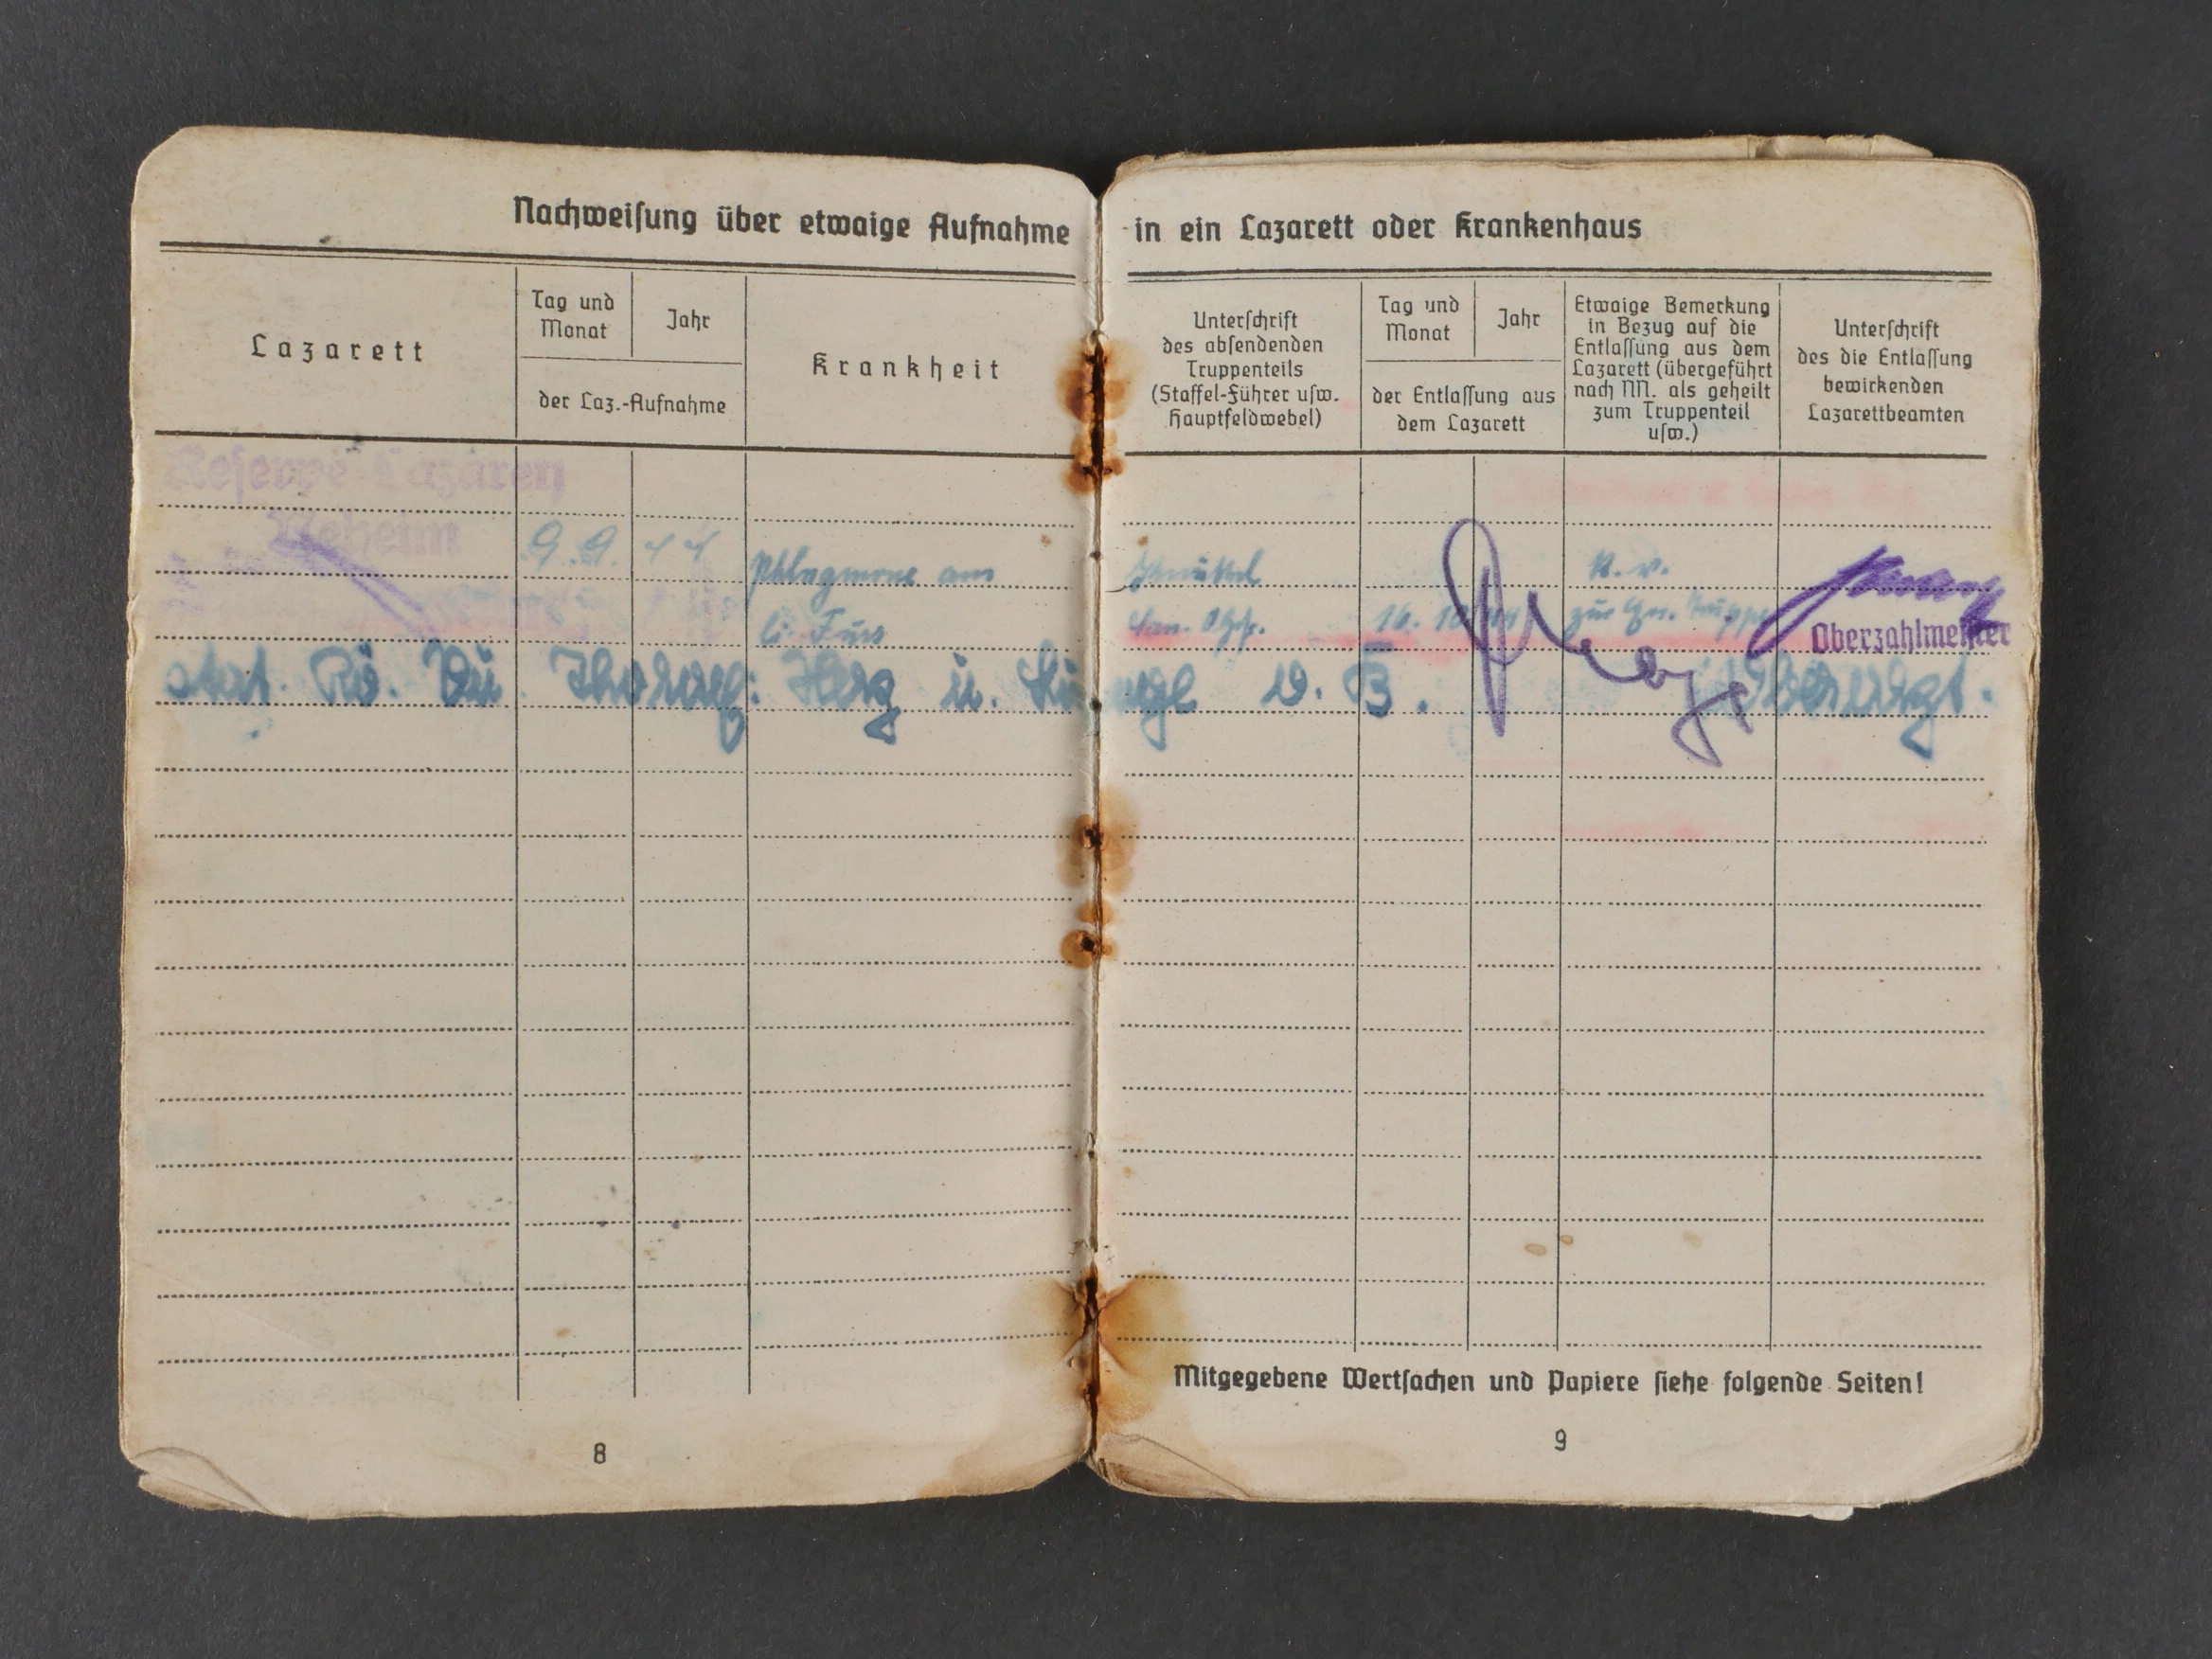 Nachweiſung über etwaige Aufnahme in ein Lazarett oder Krankenhaus
Lazarett
Tag und
Monat
Jahr
der Laz.-Aufnahme
Krankheit
Unterſchrift
des abſendenden
Truppenteils
(Staffel-Führer uſw.
Hauptfeldwebel)
Tag und
Monat
Jahr
der Entlaſſung aus
dem Lazarett
Etwaige Bemerkung
in Bezug auf die
Entlaſſung aus dem
Lazarett (übergeführt
nach NN. als geheilt
zum Truppenteil
uſw.)
Unterſchrift
des die Entlaſſung
bewirkenden
Lazarettbeamten
Reserve-Lazarett
9.9. 44
Phlegmone am
li. Fuss
San.
16. 10. 44
k.v.
zur
Oberzahlmeister
Rö. Du. Thorax: Herz u. Lunge o. B.
Mitgegebene Wertſachen und Papiere ſiehe folgende Seiten!
8
9